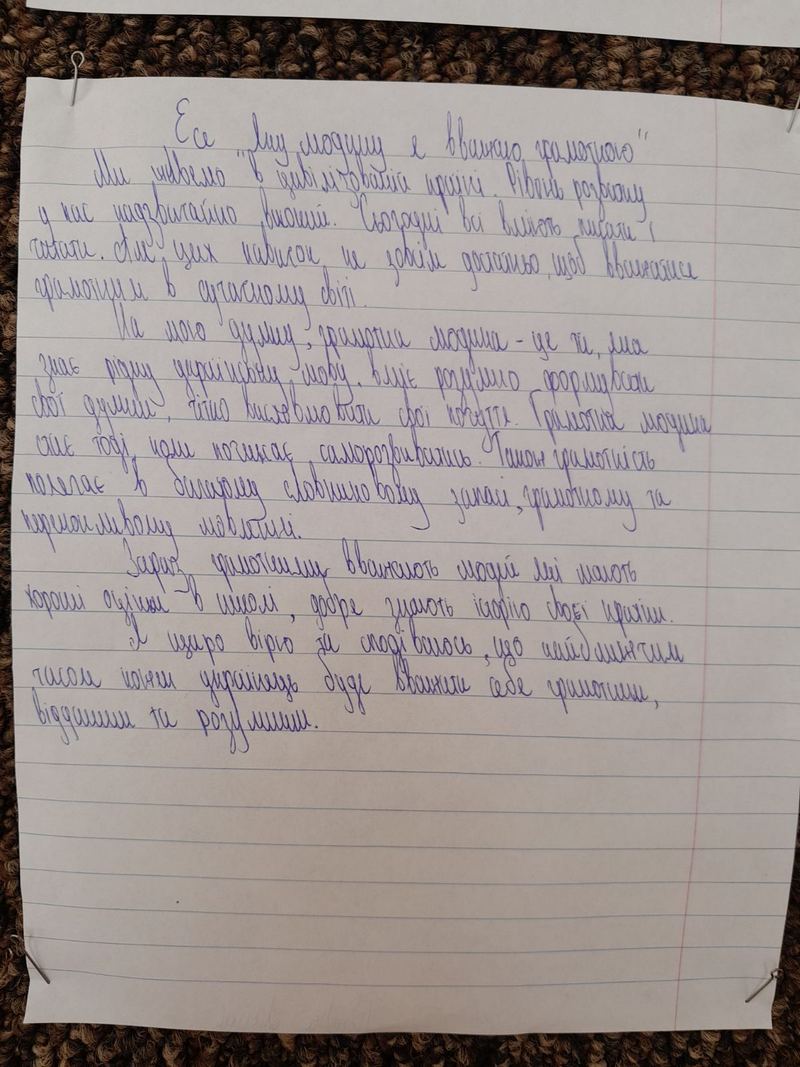 Есе „Яку людину я вважаю грамотною"
Ми живемо в цивілізованій країні. Рівень розвитку
у нас надзвичайно високий. Сьогодні всі вміють писати і
читати. Але цих навичок не зовсім достатньо, щоб вважатися
грамотним в сучасному світі.
На мою думку, грамотна людина - це та, яка
знає рідну українську мову, вміє розумно формувати
свої думки, чітко висловлювати свої почуття. Грамотна людина
стає тоді, коли починає саморозвиватись. Також грамотність
полягає в багатому словниковому запасі, грамотному та
переконливому мовленні.
Зараз грамотними вважають людей які мають
хороші оцінки в школі, добре знають історію своєї країни.
Я щиро вірю та сподіваюсь, що найближчим
часом кожен українець буде вважати себе грамотним,
відданим та розумним.